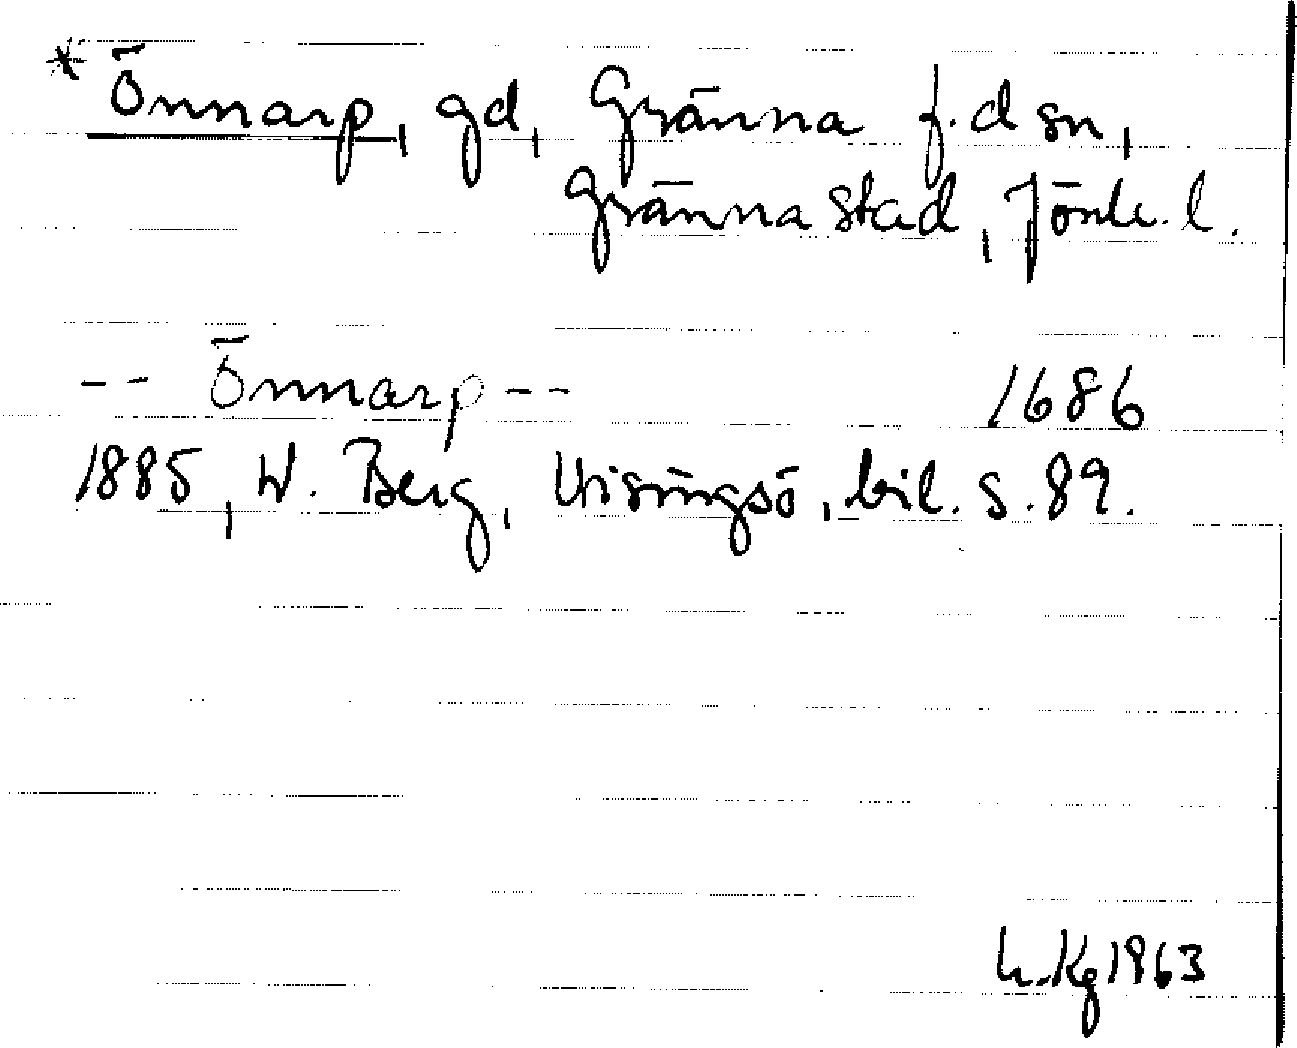 * Önnarp, gd, Gränna f.d sn,
Gränna stad, Jönk. l.
-- Önnarp -- 1686
1885, W. Berg, Visingsö, bil. s. 89.
h.Kg 1963